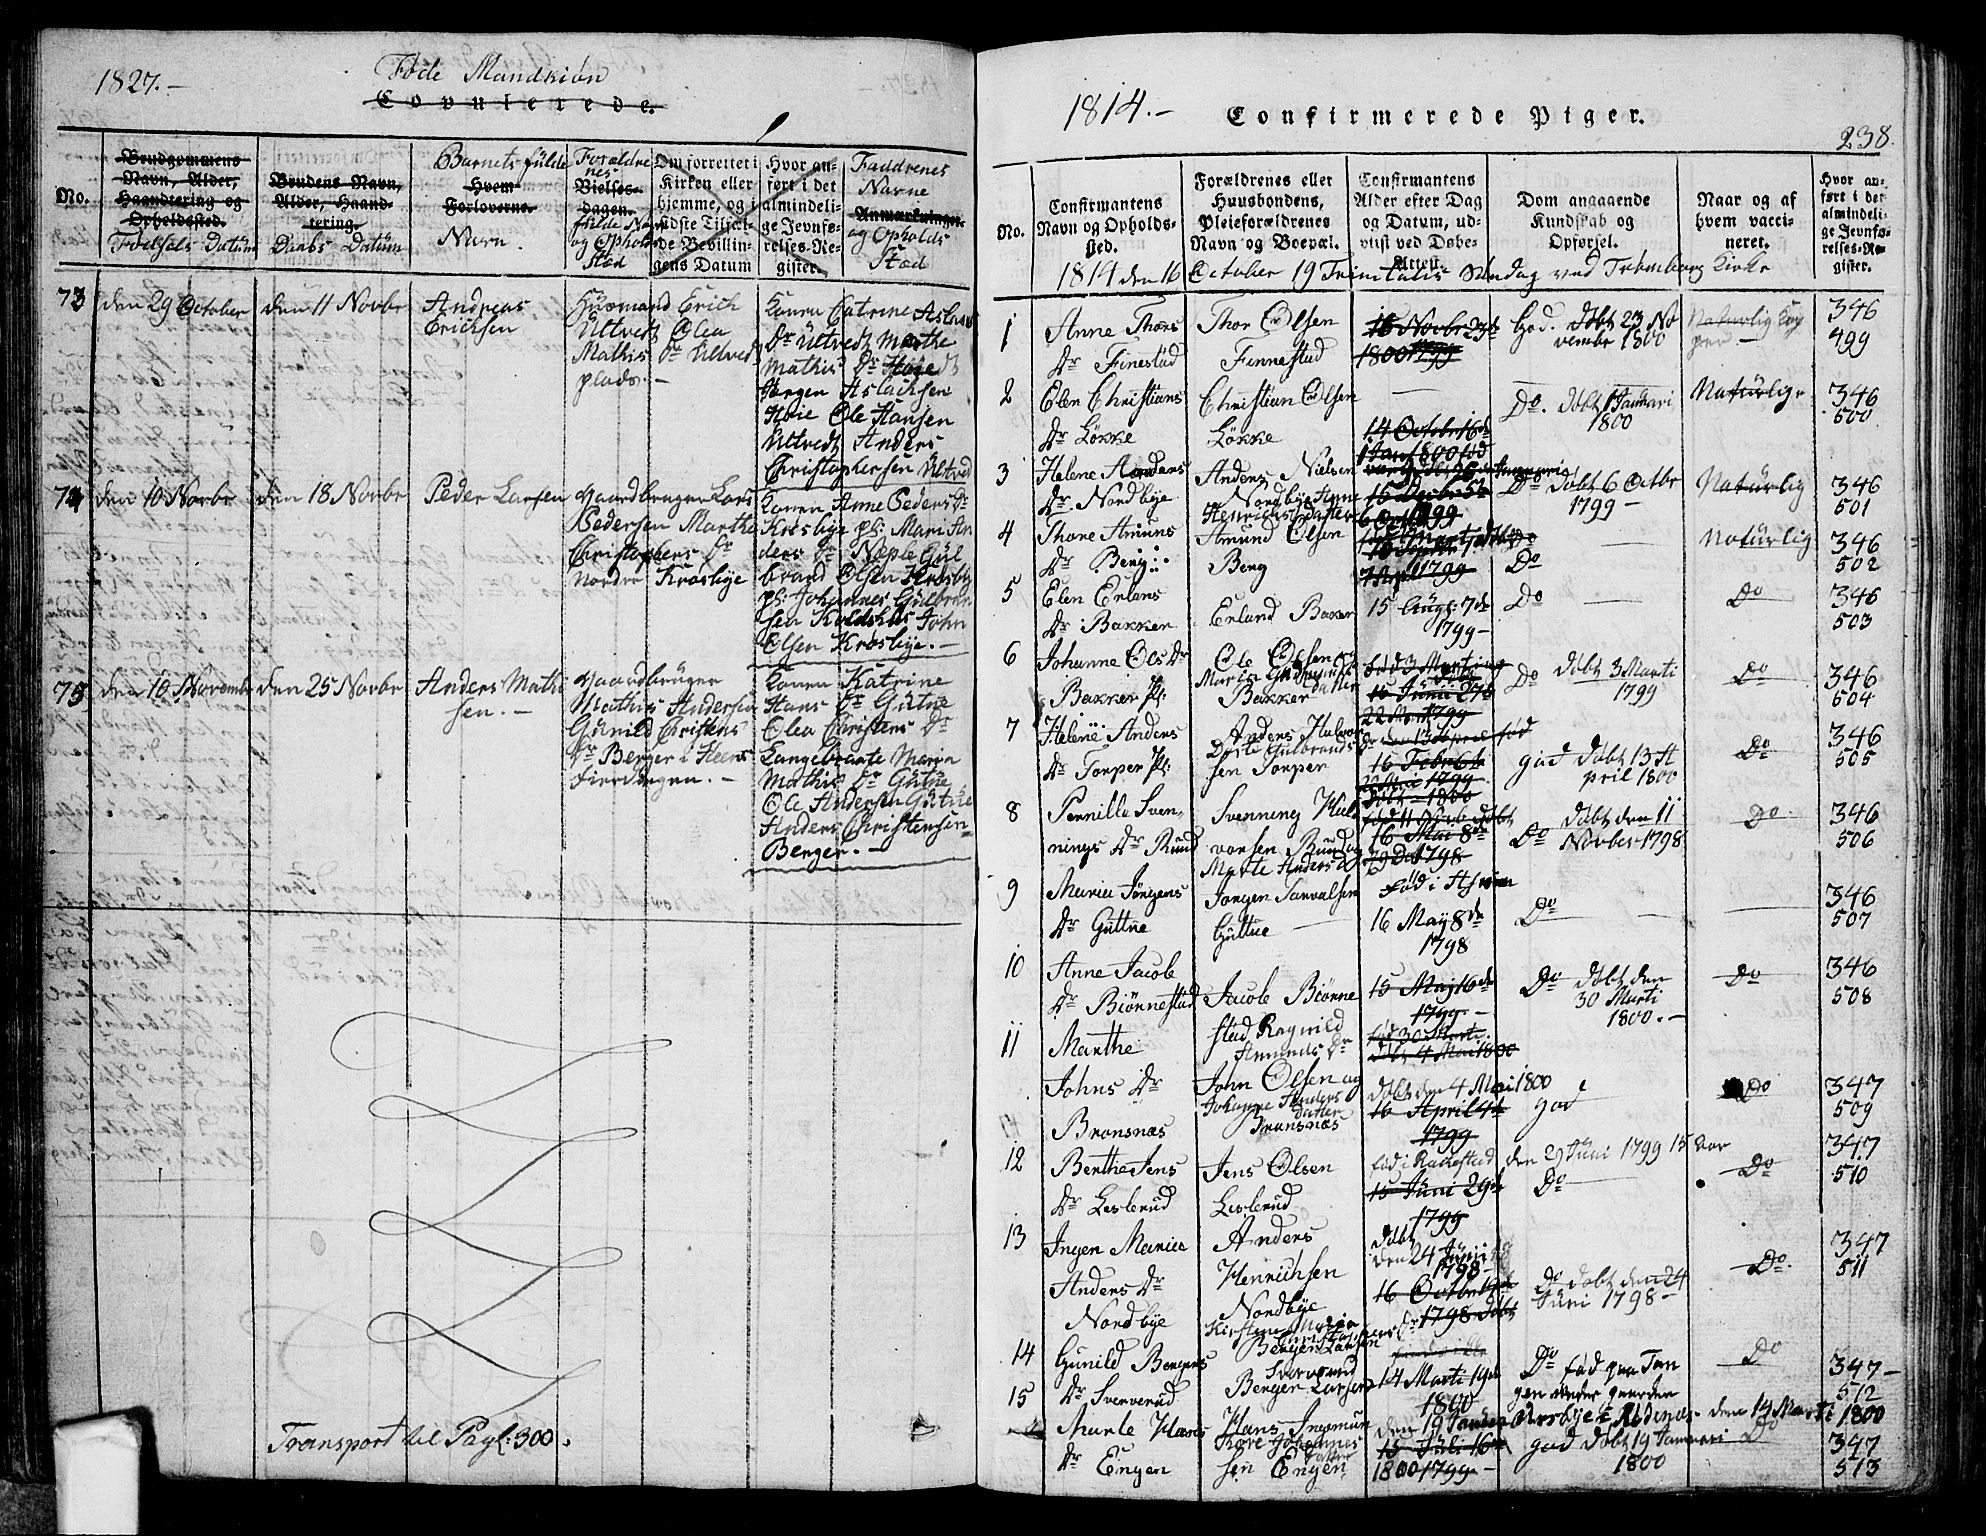 1827.-
Føde Mandkiøn
Copulerede.
No.
Brudgommens
Navn, Alder,
Haandtering og
Opholdssted.
Fødsels Datum
Brudens Navn,
Alder, Haand-
tering.
Daabs Datum
Barnets fulde
Hvem
Forloverne.
Navn.
Forældre
nes
Bielses-
dagen.
fulde Navn
og Opholds
Stæd
Om forrettet i
Kirken eller
hjemme, og i
sidste Tilfæl-
de Bevillin-
gens Datum
Hvor an-
ført i det
almindeli-
ge Jevnfø-
relses-Re-
gister.
Faddrenes
Navne
Anmærkninger
og Opholds
Stæd
73
den 29 October
den 11 Novbr
Andreas
Erichsen
Huusmand Erich
Ultvedt Olea
Mathis Dr Ultveds
plads.-
Konen Catrine Aslachs
Dr Ultvedt Marthe
Mathis Dr Høie
Jørgen Aslachsen
Høie Ole Hansen
Ultvedt Anders
Christophersen Ultved
74
den 10 Novbr
den 18 Novbr
Peder Larsen
Gaardbruger Lars
Pedersen Marthe
Christophers Dr
Nordre Krosbye
Konen Anne Peders Dr
Krosbye pl: Mari An
ders Dr Næple Gul
brand Olsen Krosby
pl: Johannes Gulbran
sen Koldshus John
Olsen Krosbye.-
75
den 10 November
den 25 Novbr
Anders Mathi
sen.-
Gaardbruger
Mathis Andersen
Gunild Christens
Dr Berger i Heers
fierdingen.-
Konen Katrine
Hans Dr Gutue
Olea Christens Dr
Langebraate Maria
Mathis Dr Gutue
Ole Andersen Gutue
Anders Christensen
Berger.-
Transport til Pag: 300.
1814.-
Confirmerede Piger.
238.
No.
Confirmantens
Navn og Opholds-
sted.
Forældrenes eller
Huusbondens,
Pleieforældrenes
Navn og Boepæl.
Confirmantens
Alder efter Dag
og Datum, ud-
viist ved Døbe-
Attest.
Dom angaaende
Kundskab og
Opførsel.
Naar og af
hvem vacci-
neret.
Hvor an-
ført i det
almindeli-
ge Jevnfø-
relses-Re-
gister.
1814 den 16 October 19 Trinitatis Søndag ved Trømborg Kirke
1
Anne Thors
Dr Finestad
Thor Olsen
Finnestad
16 Novbr 23de
1800 1799
God. døbt 23 No
vember 1800
Naturlig Kop
per.-
346
499
2
Elen Christians
Dr Løkke
Christian Olsen
Løkke
14 Octobr 16de
Do. døbt 1 Januari
1800
Naturlige
346
500
3
Helene Anders
Dr Nordbye
Anders Nielsen
Nordbye Anne
Henrichs datter
Do døbt 6 Octbr
1799 -
Naturlig
346
501
4
Thore Amuns
Dr Berg
Amund Olsen
Berg
Do
Naturlig
346
502
5
Elen Erlans
Dr Bakker
Erland Baker
15 Augs: 7de
1799-
Do
Do
346
503
6
Johanne Ols Dr
Bakker Pl:
Ole Olsen og
Bakker
16 Juni 27de
22 Marti 1799
Do døbt 3 Marti
1799
Do
346
504
7
Helene Anders
Dr Torper Pl:
Anders Halvor
Dorte Gulbrands Dr
sen Torper
16 Febr 6te
1799
god døbt 13 A
pril 1800
Do
346
505
8
Pernille Sven-
nings Dr Ruud
Svenning Hal
vorsen Ruud og
Marte Anders Dr
16 Mai 8de
1798
døbt den 11
Do Novber 1798
Do
346
506
9
Maria Jørgens
Dr Guttue
Jørgen Torvalsen
Guttue
16 May 8de
1798
Do
346
507
10
Anne Jacob
Dr Biønnestad
Jacob Biønne
stad Ragnild
Amunds Dr
15 Maj 16de
1799-
Do døbt den
30 Marti
1800.-
Do
346
508
11
Marthe
Johns Dr
Brønsnæs
John Olsen og
Johanne Anders
datter
Brønsnæs
født 30 Marti
døbt 4 Mai 1800
døbt den 4 Mai 1800
16 April 4de
1799
god
Do
347
509
12
Berthe Jens
Dr Leslerud
Jens Olsen
Leslerud
fød i Rakkestad den 29 Juni 1799 15 Aar
15 Juni 29de
1799
Do
Do
347
510
13
Ingen Maria
Anders Dr
Nordbye
Anders
Henrichsen
Nordbye
døbt
den 24 Junii
1798-
16 Octbr
1798
Do døbt den 24
Juni 1798-
Do.
347
511
14
Gunild Bergers
Dr Sververud
Bergen Larsen
Sververud
Bergen Larsen
14 Marti 19de
1800
Do fød paa Tan
gen under gaarden
den 14 Marti 1800
Do
347-
512
15
Marte Hans
Dr Engen
Hans Ingemun
sen Engen
15 Juli 16de
1800 1799-
god døbt 19 Januari
1800
Do
347
513